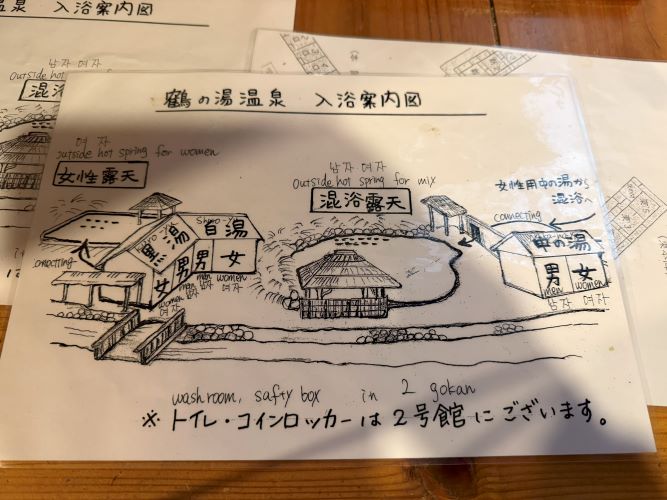 温泉 入浴案内図
남자 여자
混
鶴の湯温泉 入浴案内図
여 자
outside hot spring for women
女性露天
남자 여자
Outside hot spring for mix
混浴露天
女性用中の湯から
混浴へ
connecting
Shiro-
黒湯 白湯
中の湯
onnecting
女 男 男 女
男 女
women men men women
여자 남자 남자 여자
men women
남자 여자
washroom, safty box in 2 gokan
※ トイレ・コインロッカーは2号館にございます。